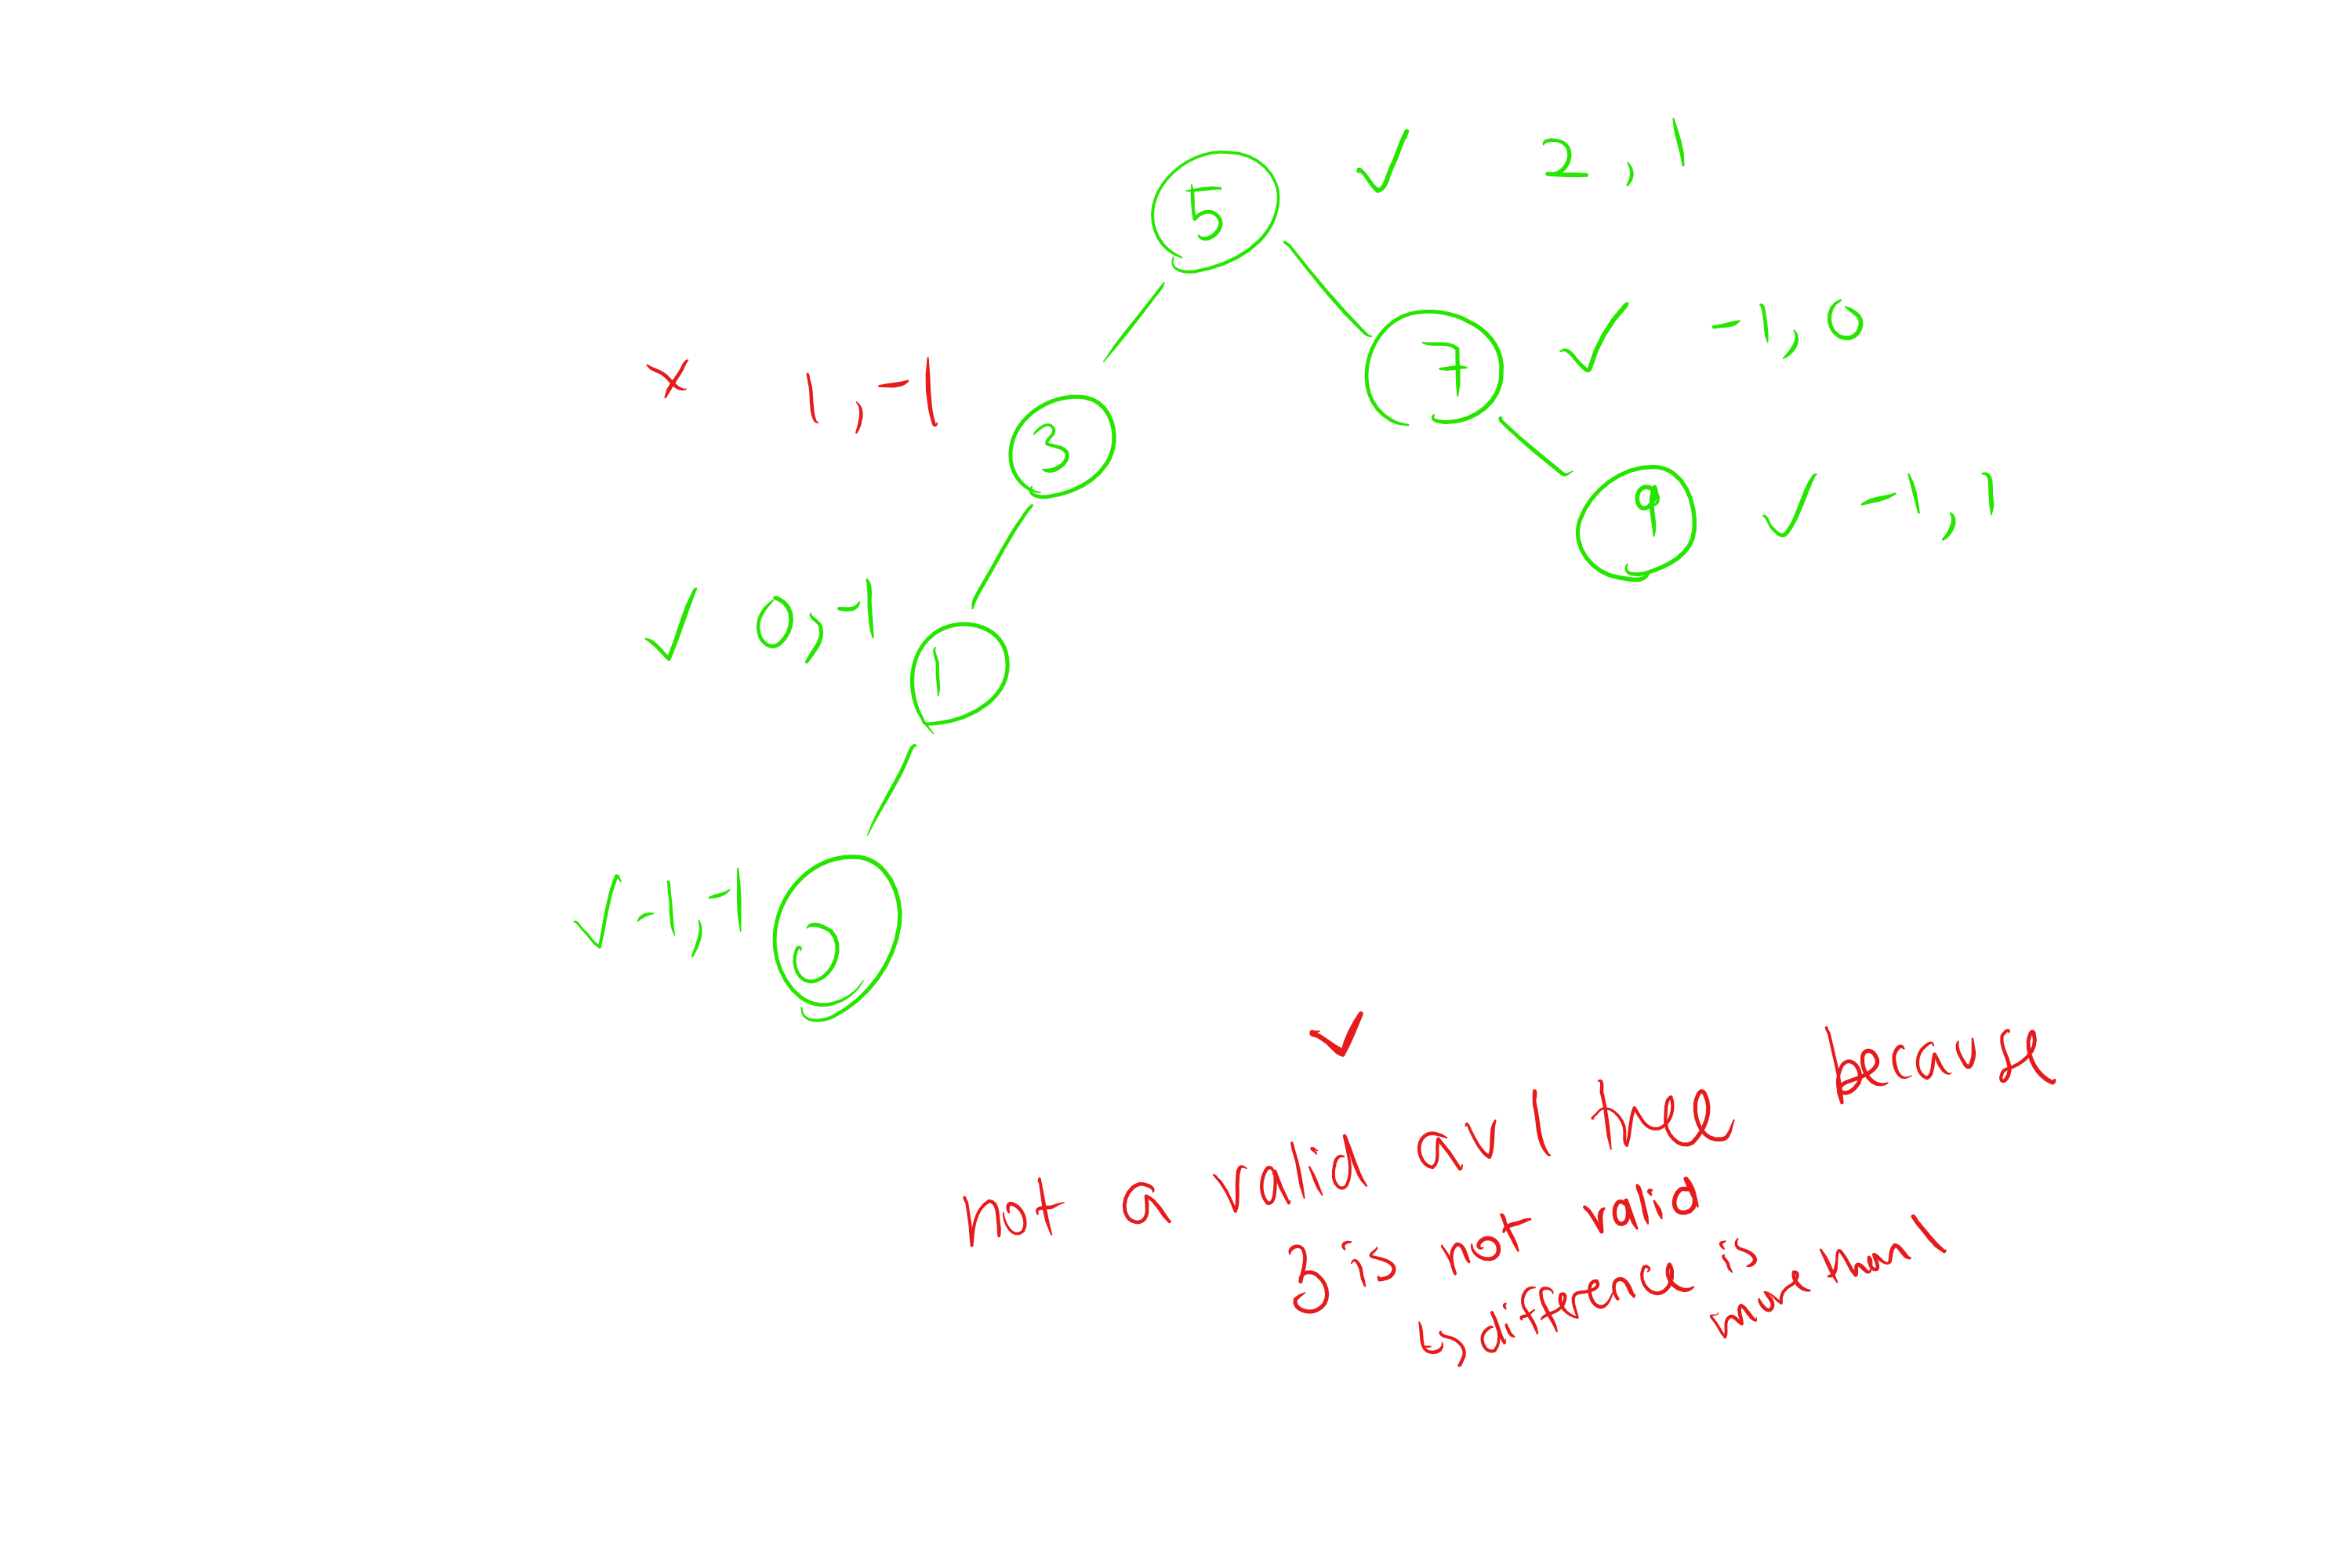 5 ✓ 2, 1
7 ✓ -1, 0
x 1, -1
3
9 ✓ -1, 1
✓ 0, -1
1
✓ -1, -1
0
✓
not a valid avl tree because
3 is not valid
↳ difference is maximum 1